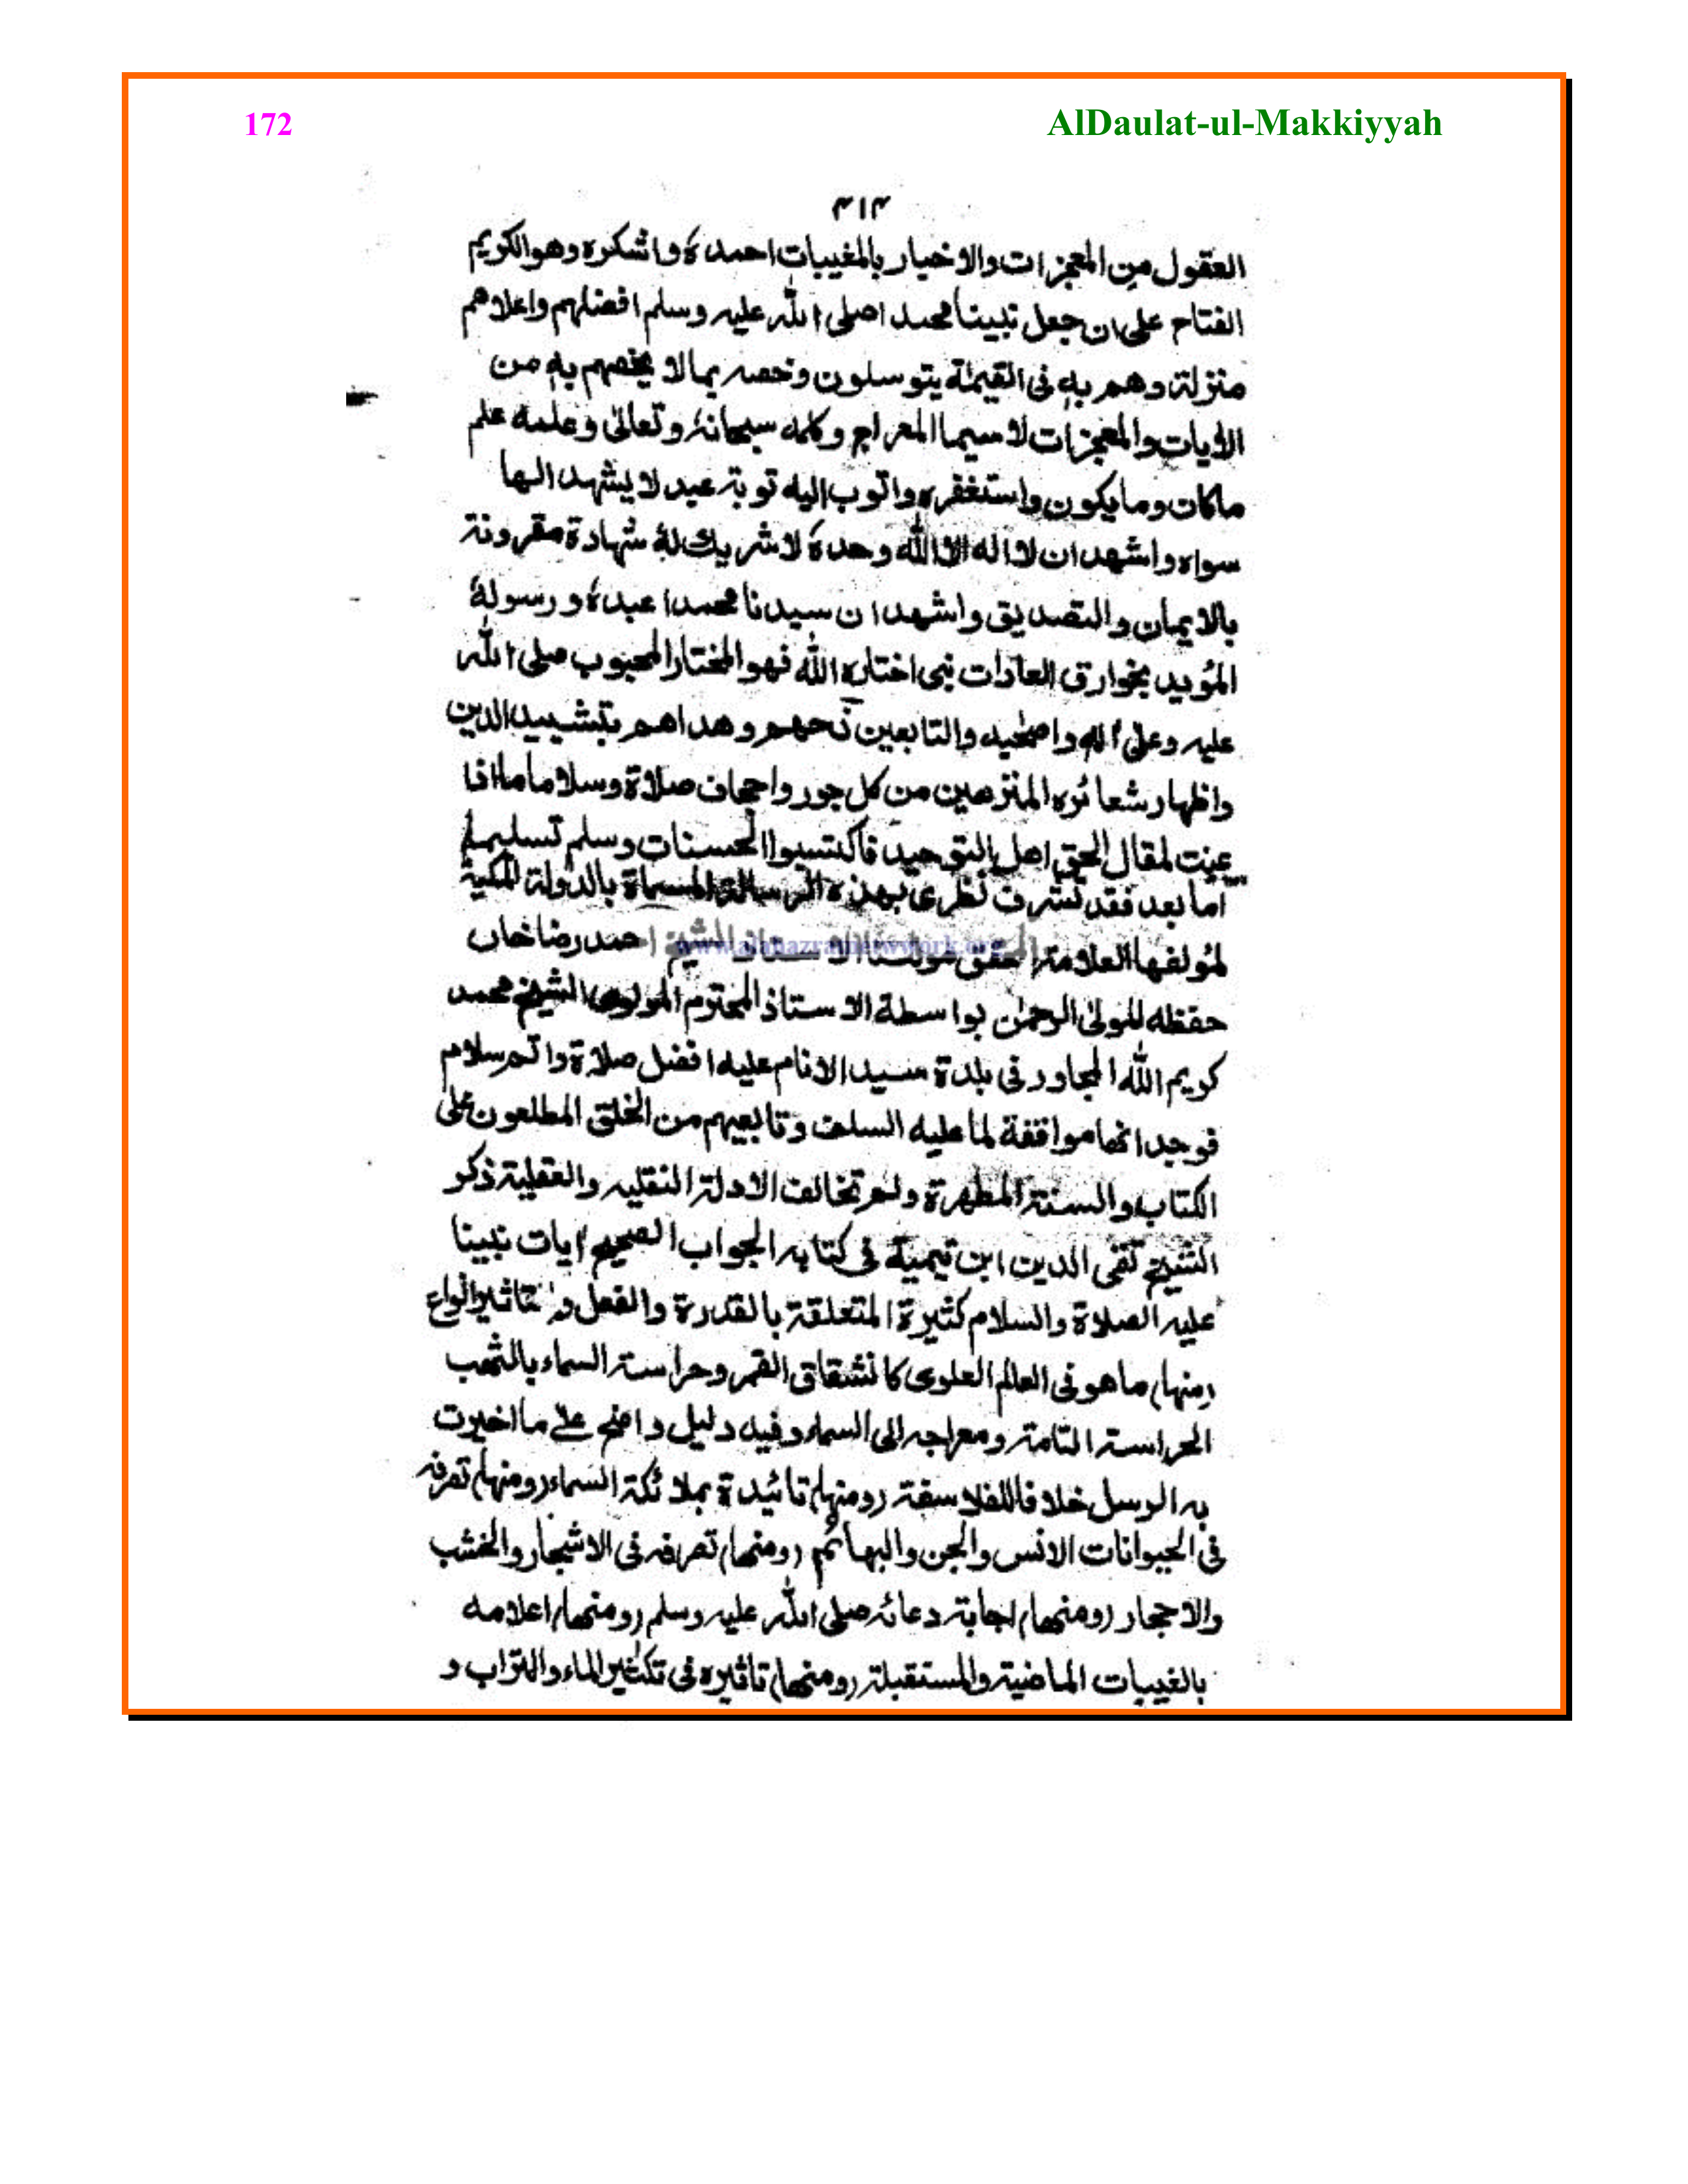 172
AlDaulat-ul-Makkiyyah
۴۱۴
العقول من المعجزات والاخبار بالمغيبات احمدہٗ واشكره وهو الكريم
الفتاح على ان جعل نبينا محمد اصلى الله عليه وسلم افضلهم واعلاهم
منزلة وهم به فى القيمة يتوسلون وخصه بما لا يخصهم به من
الاٰيات والمعجزات لا سيما المعراج وكلمه سبحانهٗ وتعالىٰ وعلمه علم
ماكان وما يكون واستغفره واتوب اليه توبة عبد لا يشهد الها
سواه واشهد ان لا اله الا الله وحدهٗ لا شريك لهٗ شهادة مقرونة
بالايمان والتصديق واشهد ان سيدنا محمدا عبدهٗ ورسولهٗ
المؤيد بخوارق العادات نبى اختاره الله فهو المختار المحبوب صلى الله
عليه وعلىٰ اٰله واصحٰبه والتابعين نحهم وهداهم بتشييد الدين
واظهار شعائره المنزهين من كل جور واحجاف صلاة وسلاما ما اذا
عينت لمقال الحق اهل التوحيد فاكتسبوا الحسنات وسلم تسليما
اما بعد فقد تشرف نظرى بهذه الرسالة المسماة بالدولة المكية
لمؤلفها العلامة المحقق مولٰنا الاستاذ الشيخ احمد رضا خاں
www.alahazratnetwork.org
حفظه المولىٰ الرحمٰن بواسطة الاستاذ المحترم المولوى الشيخ محمد
كريم الله المجاور فى بلدة سيد الانام عليه افضل صلاة واتم سلام
فوجدانها موافقة لما عليه السلف وتابعيهم من الخلق المطلعون على
الكتاب والسنة المطهرة ولم تخالف الادلة النقليه والعقلية ذكر
الشيخ تقى الدين ابن تيمية فى كتابه الجواب الصحيح اٰيات نبينا
عليه الصلاة والسلام كثيرة المتعلقة بالقدرة والفعل و تاثير انواع
(منها) ما هو فى العالم العلوى كانشقاق القمر وحراسة السماء بالشهب
الحراسة التامة ومعراجه الى السماء وفيه دليل واضح علے ما اخبرت
به الرسل خلافا للفلاسفة (ومنها) تائيدة بملائكة السماء (ومنها) تصرفه
فى الحيوانات الانس والجن والبهائم (ومنها) تصرفه فى الاشجار والخشب
والاحجار (ومنها) اجابة دعائه صلى الله عليه وسلم (ومنها) اعلامه
بالغيبات الماضية والمستقبلة (ومنها) تاثيره فى تكثير الماء والتراب و